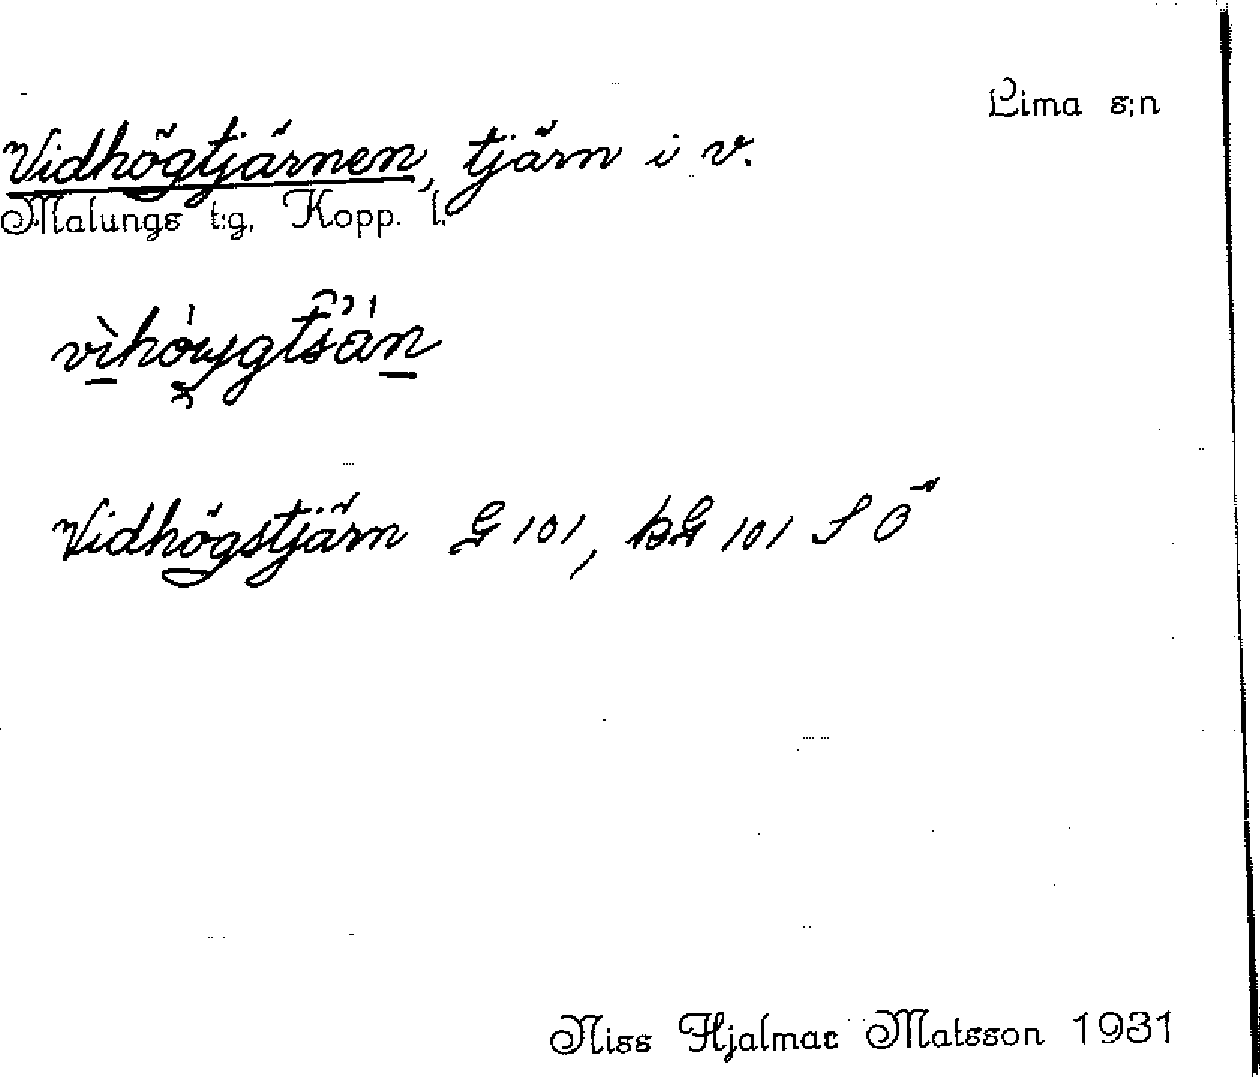 Lima s:n
Vidhögtjärnen, tjärn i v.
Malungs t:g, Kopp. l.
Vidhögstjärn G 101, BG 101 S Ö
Niss Hjalmar Matsson 1931